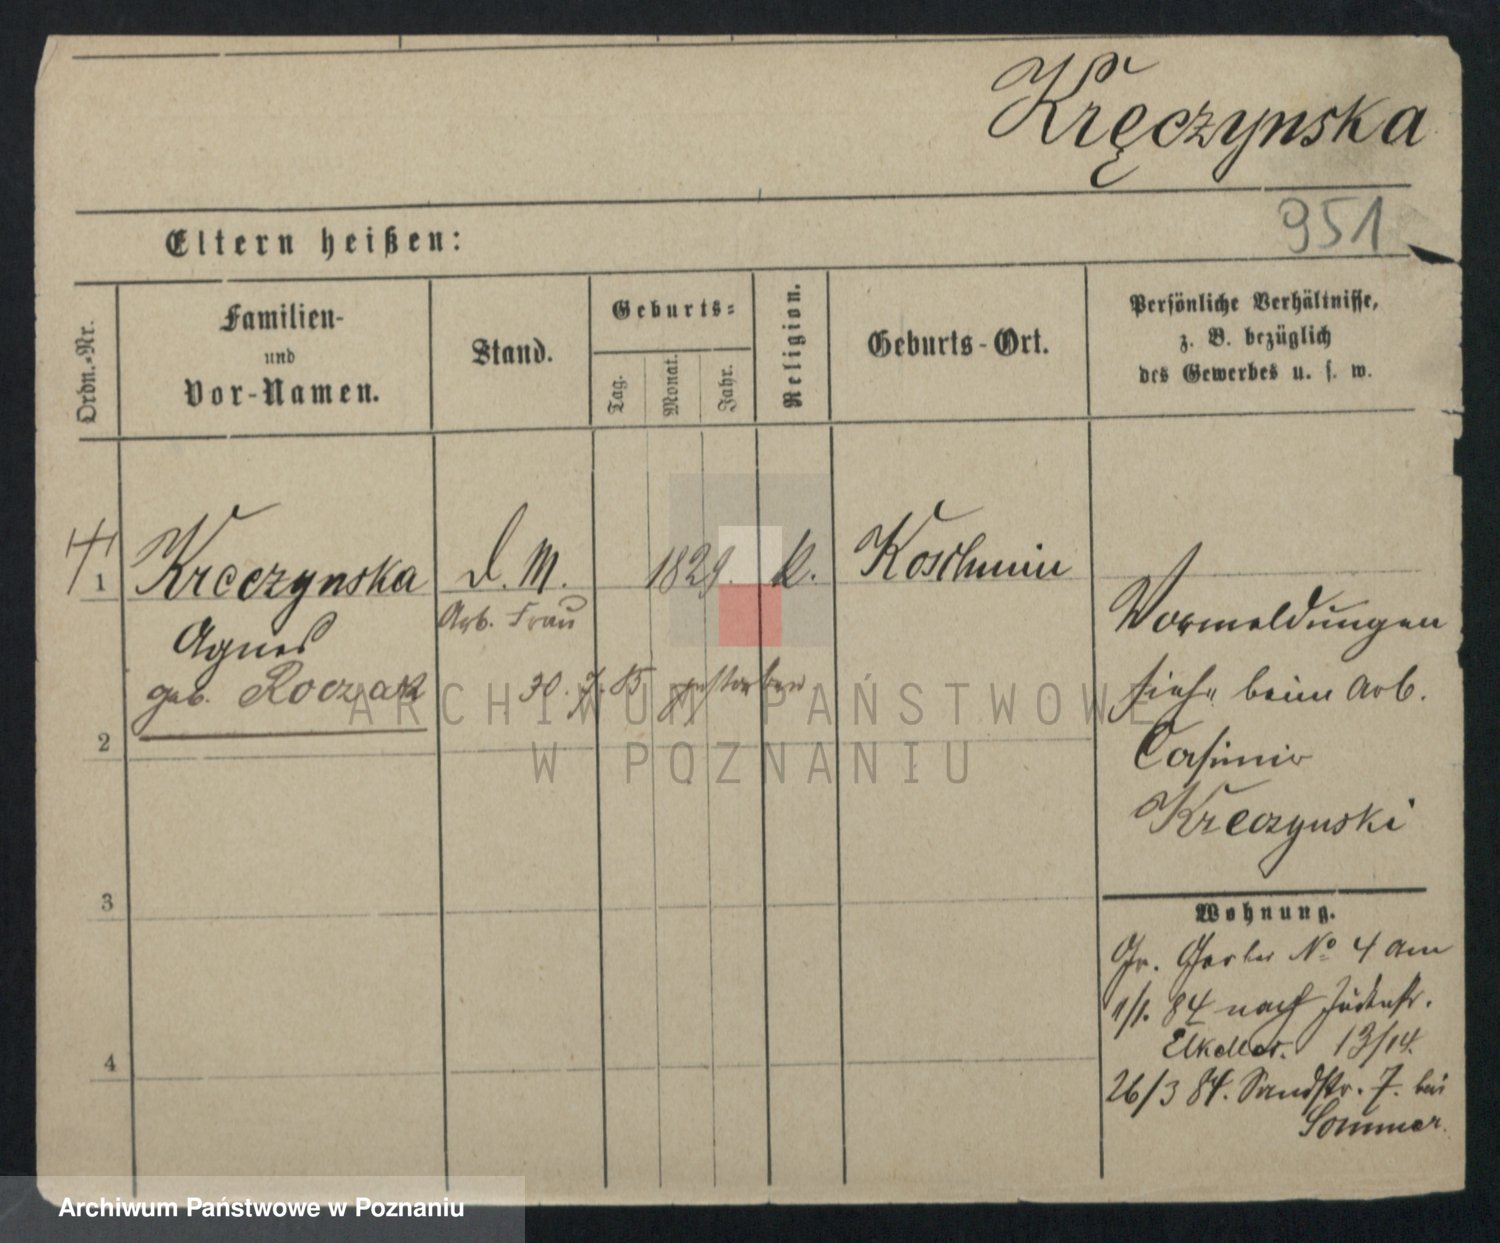 Kręczynska
951
Eltern heißen:
Ordn.-Nr.
Familien-
und
Vor-Namen.
Stand.
Geburts-
Tag.
Monat.
Jahr.
Religion.
Geburts-Ort.
Persönliche Verhältnisse,
z. B. bezüglich
des Gewerbes u. s. w.
1
Kreczynska
Agnes
geb. Roczak
D. M.
Arb. Frau
1829.
K.
Koschmin
30. 7. 85 gestorben
Vormeldungen
siehe beim Arb.
Casimir
Kreczynski
2
3
4
Wohnung.
Gr. Gerber No 4 am
1/1. 84 nach Judenstr.
13/14.
26/3 84. Sandstr. 7. bei
Sommer.
ARCHIWUM PAŃSTWOWE
W POZNANIU
Archiwum Państwowe w Poznaniu